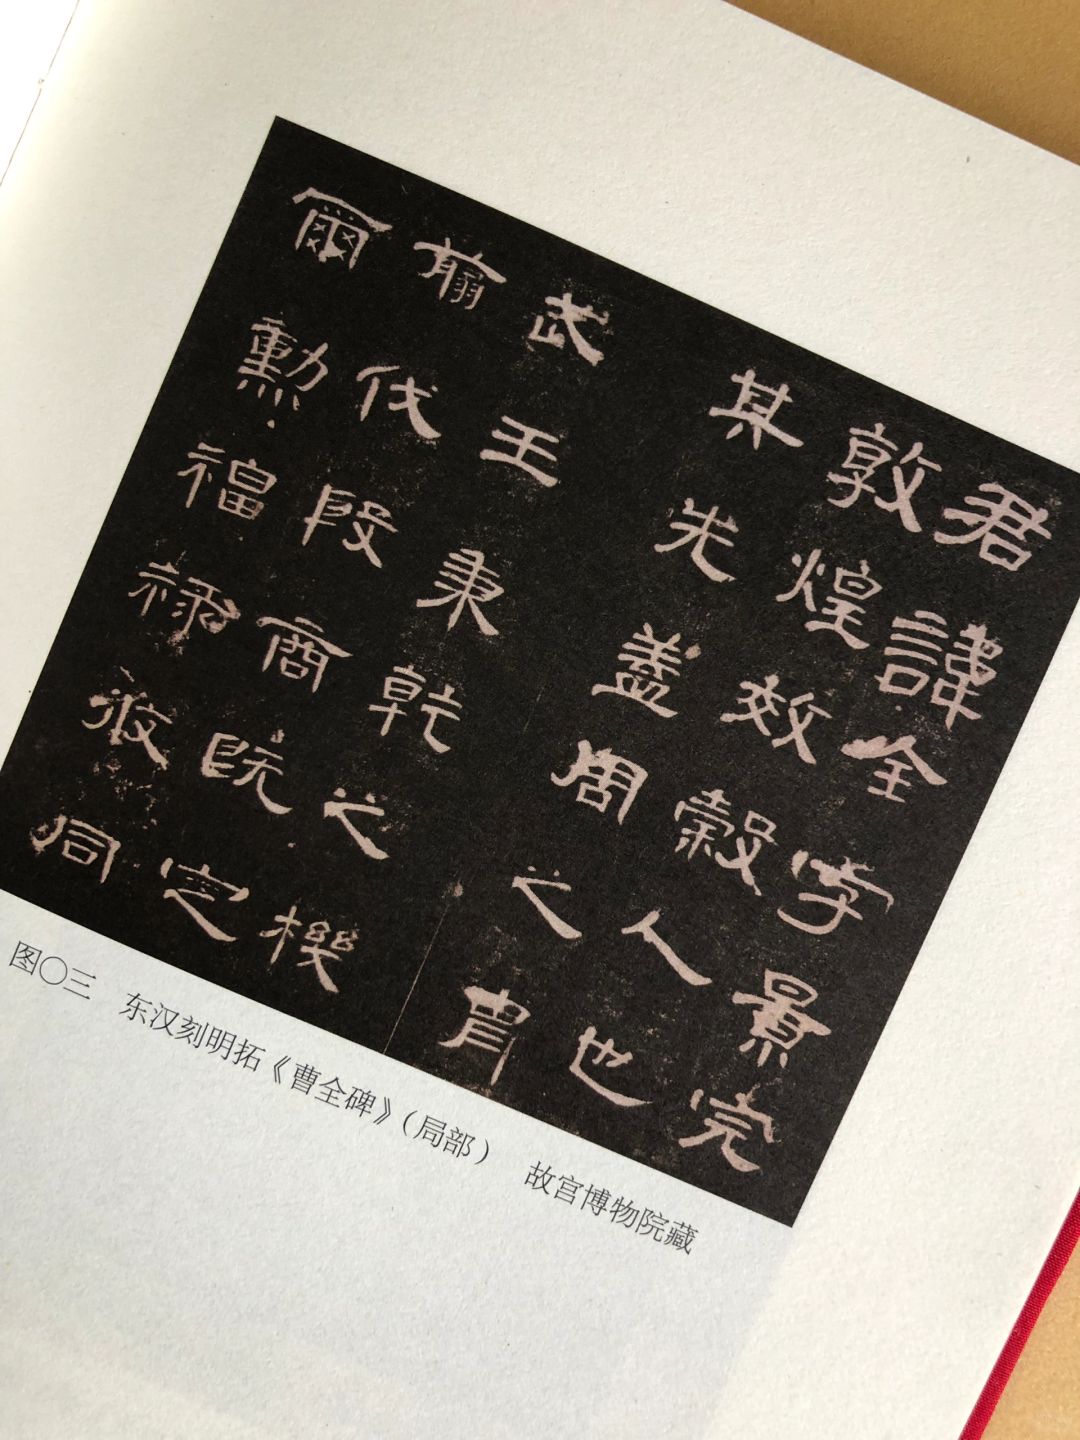 君諱全字景完
敦煌效穀人也
其先盖周之胄
武王秉乾之機
翦伐殷商既定
爾勳福祿攸同
图〇三 东汉刻明拓《曹全碑》(局部) 故宫博物院藏